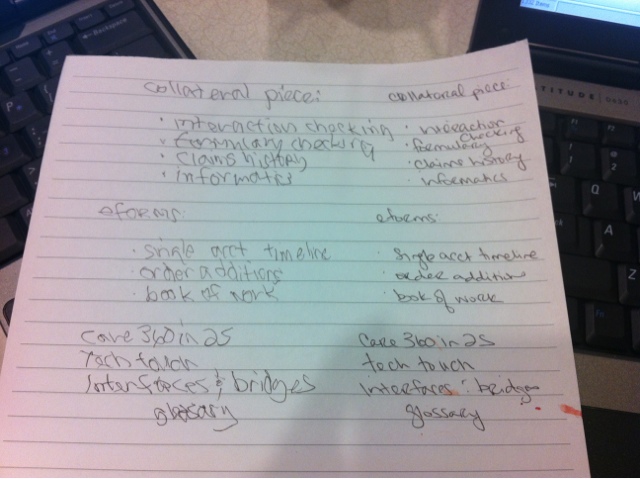 collateral piece:
· interaction checking
· formulary checking
· claims history
· informatis
eforms:
· single acct timeline
· order additions
· book of work
Care 360 in 25
Tech touch
Interfaces & bridges
glossary
collatorial piece:
· interaction
checking
· formulary
· claims history
· informatics
eforms:
· single acct timeline
· order additions
· book of work
Care 360 in 25
tech touch
Interfaces & bridges
glossary
LATITUDE
Backspace